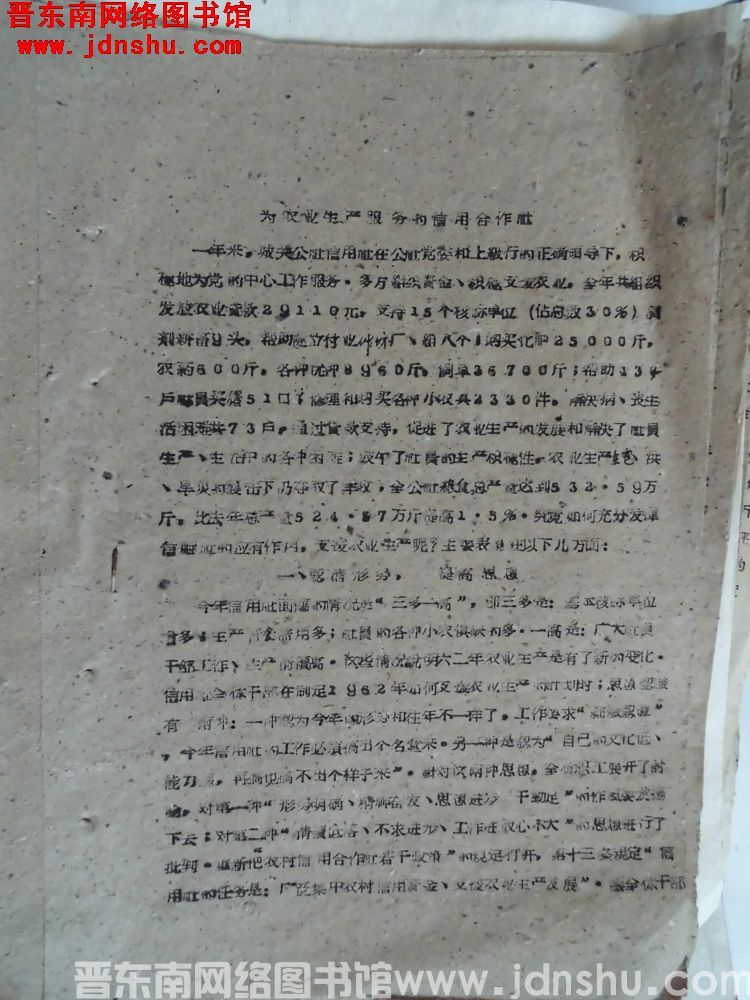 晋东南网络图书馆
www.jdnshu.com
为农业生产服务的信用合作社
一年来，城关公社信用社在公社党委和上级行的正确领导下，积
极地为党的中心工作服务·多方组织资金、积极支援农业。全年共组织
发放农业贷款29110元，支持15个核标单位（佔总数30%）
剂新畜9头，帮助 厂、购买化肥25000斤，
农葯600斤，各种优种8960斤，饲草36700斤；帮助13
户社員买猪51口；修理和购买各种小农具2330件。解决病、丧生
活困难共73户，通过貸款支持，促进了农业生产的发展和解决了社員
生产、生活中的各种困难；鼓午了社員的生产积极性，农业生产 洪
、旱灾的襲击下仍夺取了丰收；全公社粮食总产量达到532·59万
斤，比去年总产量524·57万斤提高1·5%·究竟如何充分发揮
信用社的应有作用，支援农业生产呢？主要表现在以下几方面：
一、認清形势， 提高思想
今年信用社面临的情况是“三多一高”，即三多是：基本核标单位
曾多；生产 費用多；社員的各种小农俱缺的多·一高是：广大社員
干部工作、生产 高·这些情况說明六二年农业生产是有了新的变化·
信用社全体干部在制定1962年如何支援农业生产的計划时；思想認識
有 种：一种認为今年的形势和往年不一样了，工作必求“
，今年信用社的工作必須搞出个名堂来·另一种是認为“自己的文化低、
能力 ，再搞也搞不出个样子来”·針对这兩种思想，全体职工展开了討
論，对第一种“形势明确、精神 发、思想进步 干勁足”的作風要发揚
下去；对第二种“情緒低落、不求进步、工作进取心不大”的思想进行了
批判·重新把农村信用合作社若干政策”的規定打开，第十三条規定“信
用社的任务是：广泛集中农村信用資金、支援农业生产发展”· 全体干部
晋东南网络图书馆www.jdnshu.com